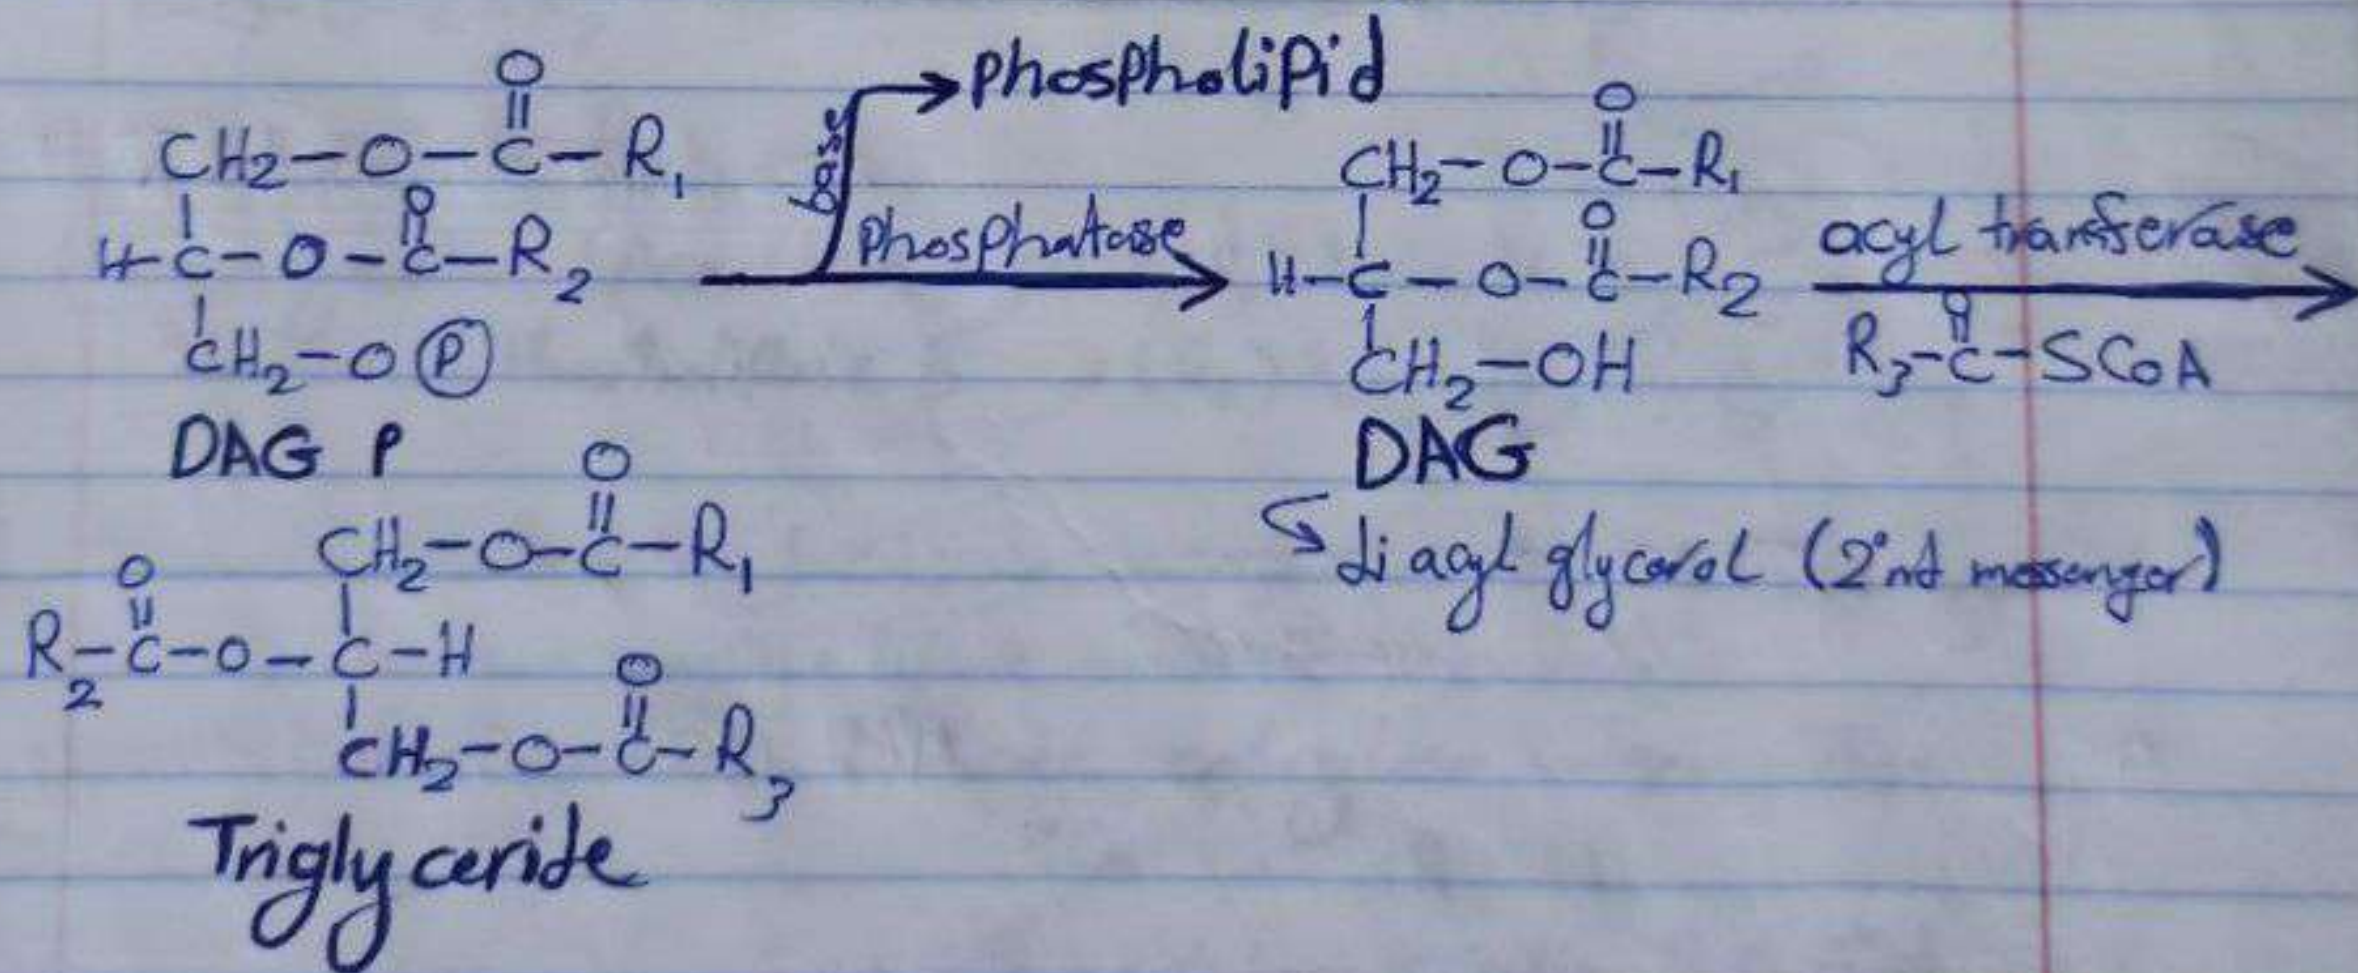 O
CH2-O-C-R1
O
H-C-O-C-R2
CH2-O (P)
DAG P
base
phospholipid
phosphatase
O
CH2-O-C-R1
O
H-C-O-C-R2
CH2-OH
DAG
di acyl glycerol (2nd messenger)
acyl transferase
O
R3-C-SCoA
O
CH2-O-C-R1
O
R2-C-O-C-H
O
CH2-O-C-R3
Triglyceride